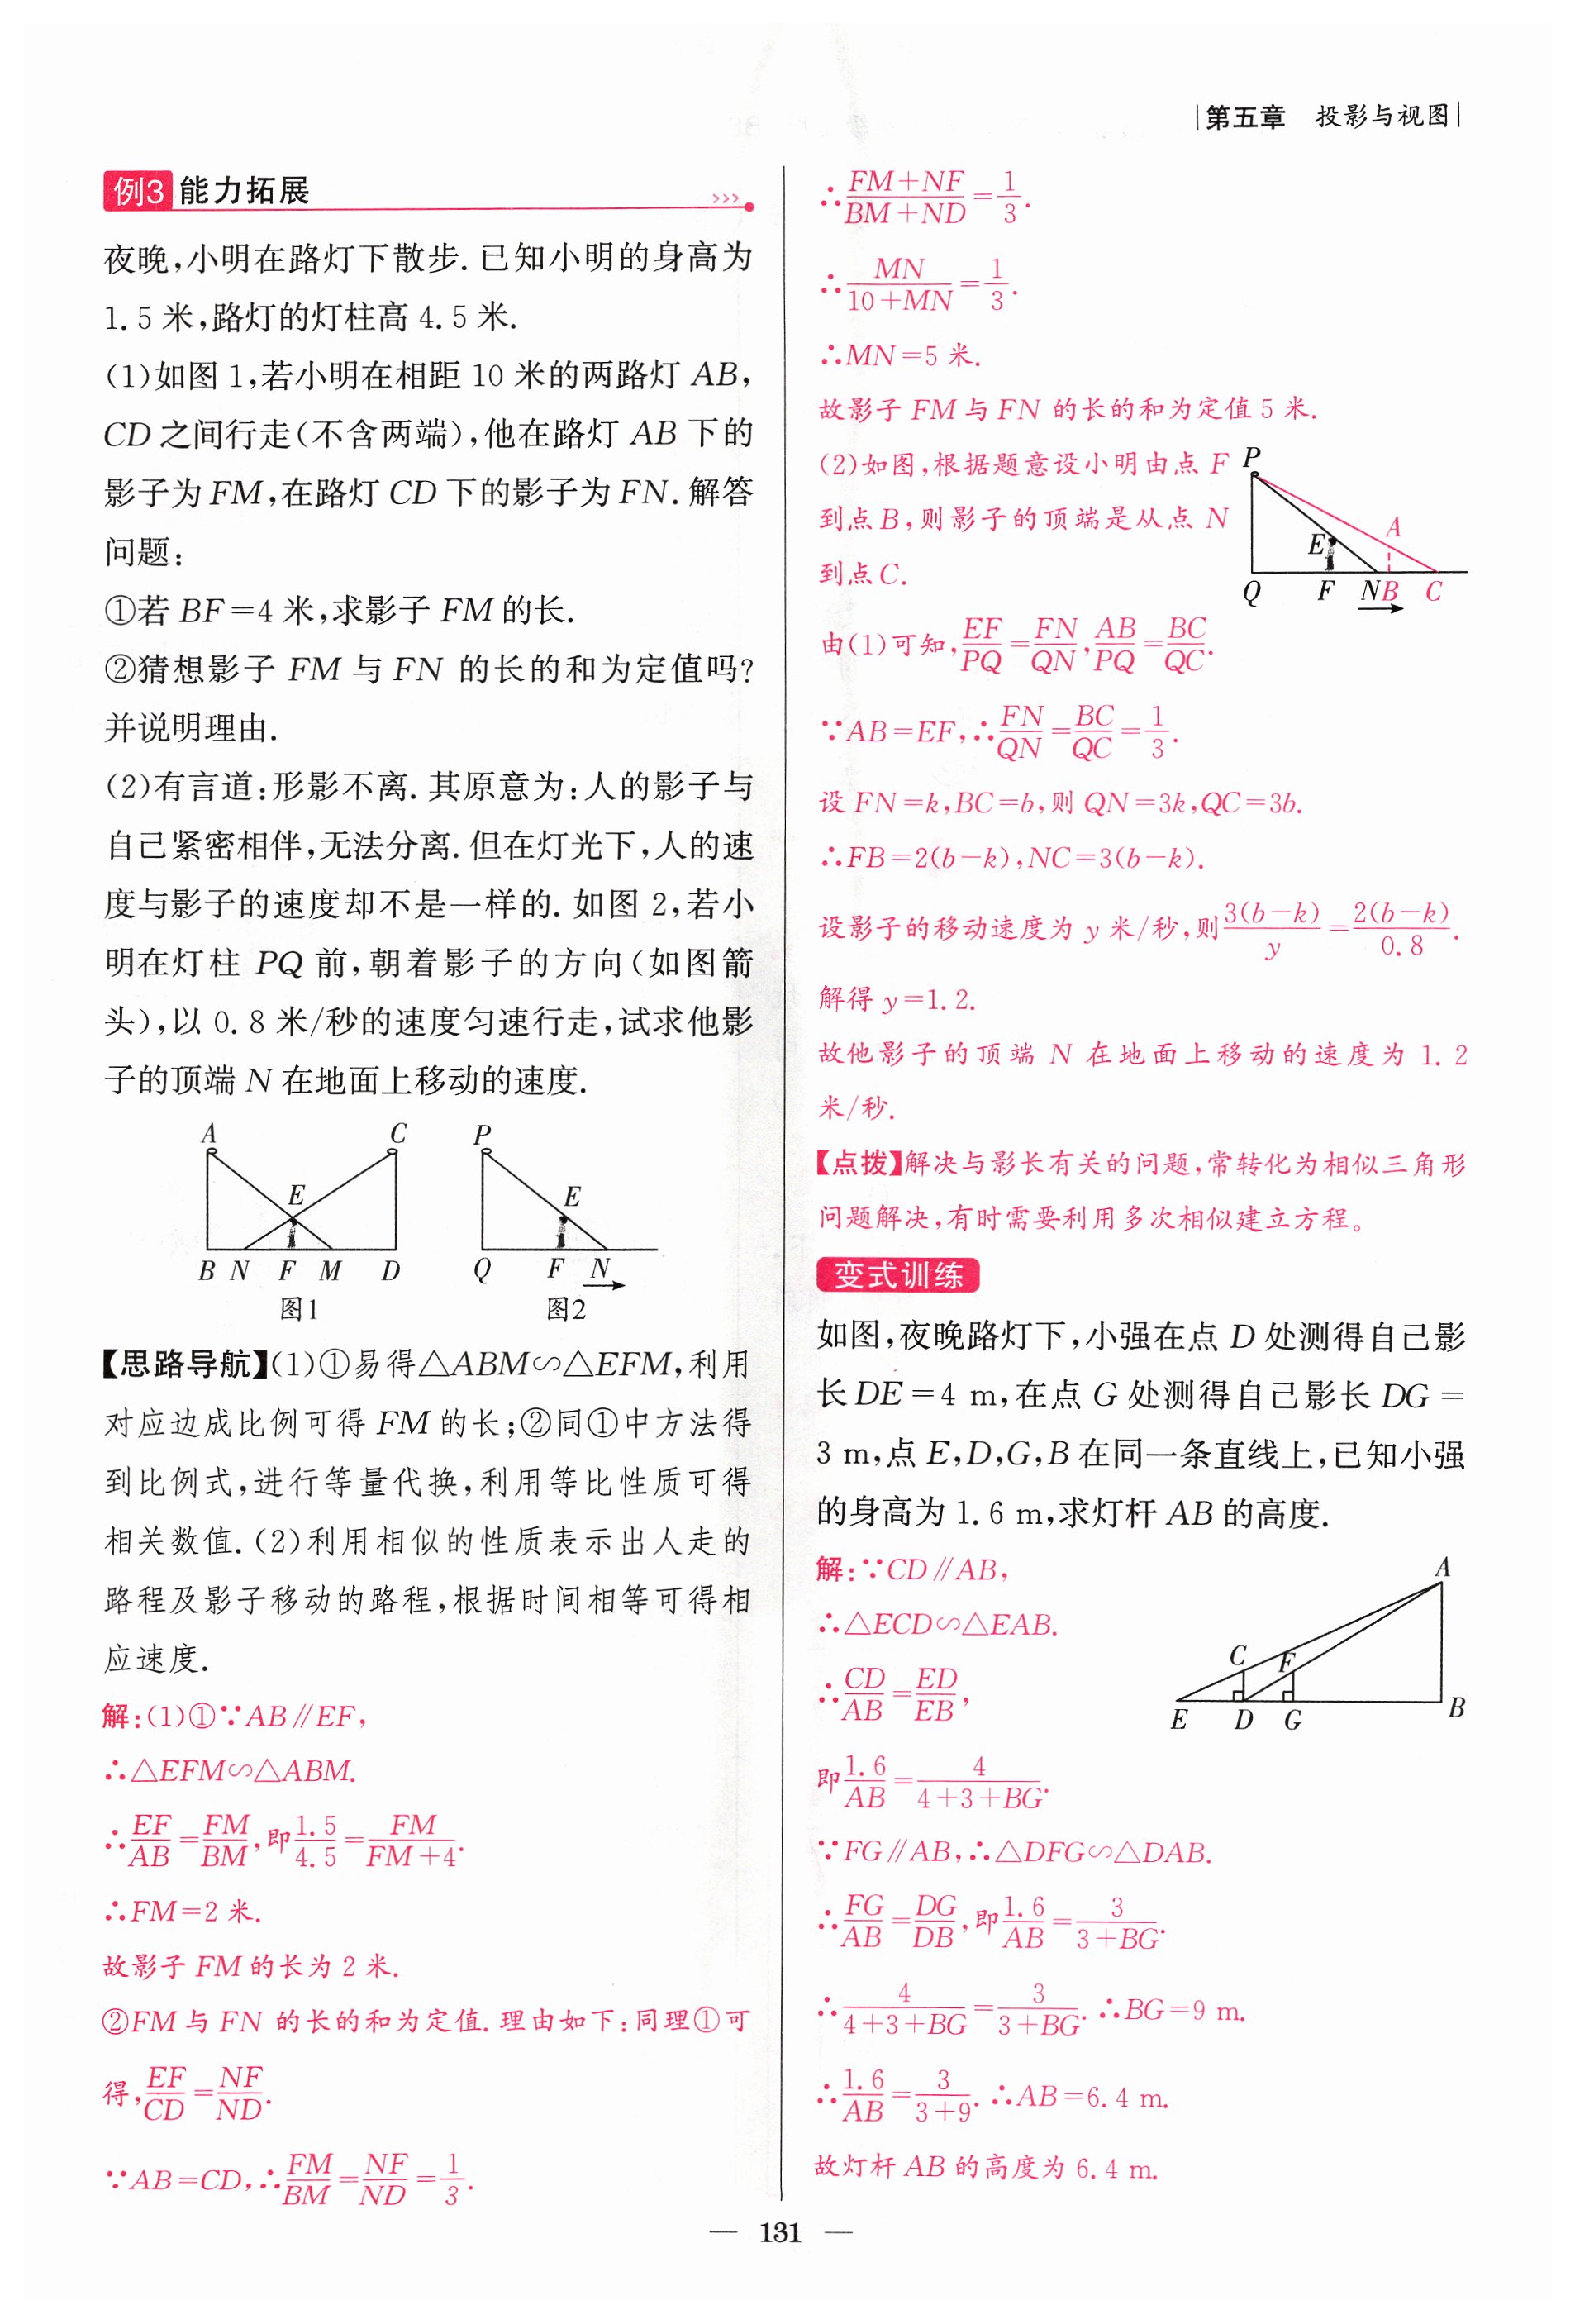 |第五章 投影与视图|
例3 能力拓展 >>>
夜晚,小明在路灯下散步.已知小明的身高为
1.5米,路灯的灯柱高4.5米.
(1)如图1,若小明在相距10米的两路灯AB,
CD之间行走(不含两端),他在路灯AB下的
影子为FM,在路灯CD下的影子为FN.解答
问题:
①若BF=4米,求影子FM的长.
②猜想影子FM与FN的长的和为定值吗?
并说明理由.
(2)有言道:形影不离.其原意为:人的影子与
自己紧密相伴,无法分离.但在灯光下,人的速
度与影子的速度却不是一样的.如图2,若小
明在灯柱PQ前,朝着影子的方向(如图箭
头),以0.8米/秒的速度匀速行走,试求他影
子的顶端N在地面上移动的速度.
A C P
E E
B N F M D Q F N
图1 图2
【思路导航】(1)①易得△ABM∽△EFM,利用
对应边成比例可得FM的长;②同①中方法得
到比例式,进行等量代换,利用等比性质可得
相关数值.(2)利用相似的性质表示出人走的
路程及影子移动的路程,根据时间相等可得相
应速度.
解:(1)①∵AB∥EF,
∴△EFM∽△ABM.
∴EF/AB=FM/BM,即1.5/4.5=FM/(FM+4).
∴FM=2米.
故影子FM的长为2米.
②FM与FN的长的和为定值.理由如下:同理①可
得,EF/CD=NF/ND.
∵AB=CD,∴FM/BM=NF/ND=1/3.
∴(FM+NF)/(BM+ND)=1/3.
∴MN/(10+MN)=1/3.
∴MN=5米.
故影子FM与FN的长的和为定值5米.
(2)如图,根据题意设小明由点F
到点B,则影子的顶端是从点N
到点C.
P
A
E
Q F N B C
由(1)可知,EF/PQ=FN/QN,AB/PQ=BC/QC.
∵AB=EF,∴FN/QN=BC/QC=1/3.
设FN=k,BC=b,则QN=3k,QC=3b.
∴FB=2(b-k),NC=3(b-k).
设影子的移动速度为y米/秒,则3(b-k)/y=2(b-k)/0.8.
解得y=1.2.
故他影子的顶端N在地面上移动的速度为1.2
米/秒.
【点拨】解决与影长有关的问题,常转化为相似三角形
问题解决,有时需要利用多次相似建立方程。
变式训练
如图,夜晚路灯下,小强在点D处测得自己影
长DE=4 m,在点G处测得自己影长DG=
3 m,点E,D,G,B在同一条直线上,已知小强
的身高为1.6 m,求灯杆AB的高度.
解:∵CD∥AB,
∴△ECD∽△EAB.
∴CD/AB=ED/EB,
A
C F
E D G B
即1.6/AB=4/(4+3+BG).
∵FG∥AB,∴△DFG∽△DAB.
∴FG/AB=DG/DB,即1.6/AB=3/(3+BG).
∴4/(4+3+BG)=3/(3+BG).∴BG=9 m.
∴1.6/AB=3/(3+9).∴AB=6.4 m.
故灯杆AB的高度为6.4 m.
— 131 —